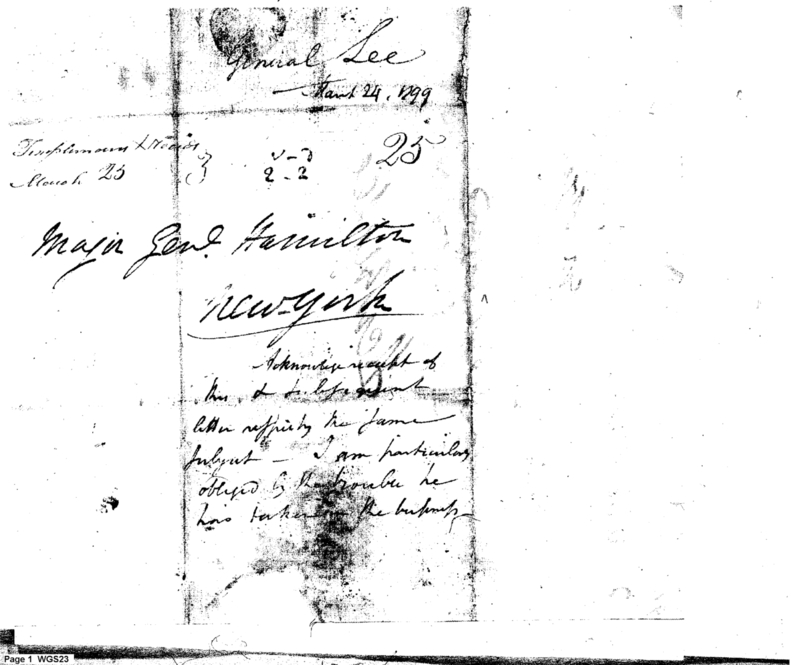 General Lee
March 24, 1799
March 25
25
2-2
Major Genl. Hamilton
New-York
Acknowlege receipt of
this & subsequent
letter respecting the same
subject – I am particularly
obliged by the trouble he
has taken in the business
Page 1 WGS23